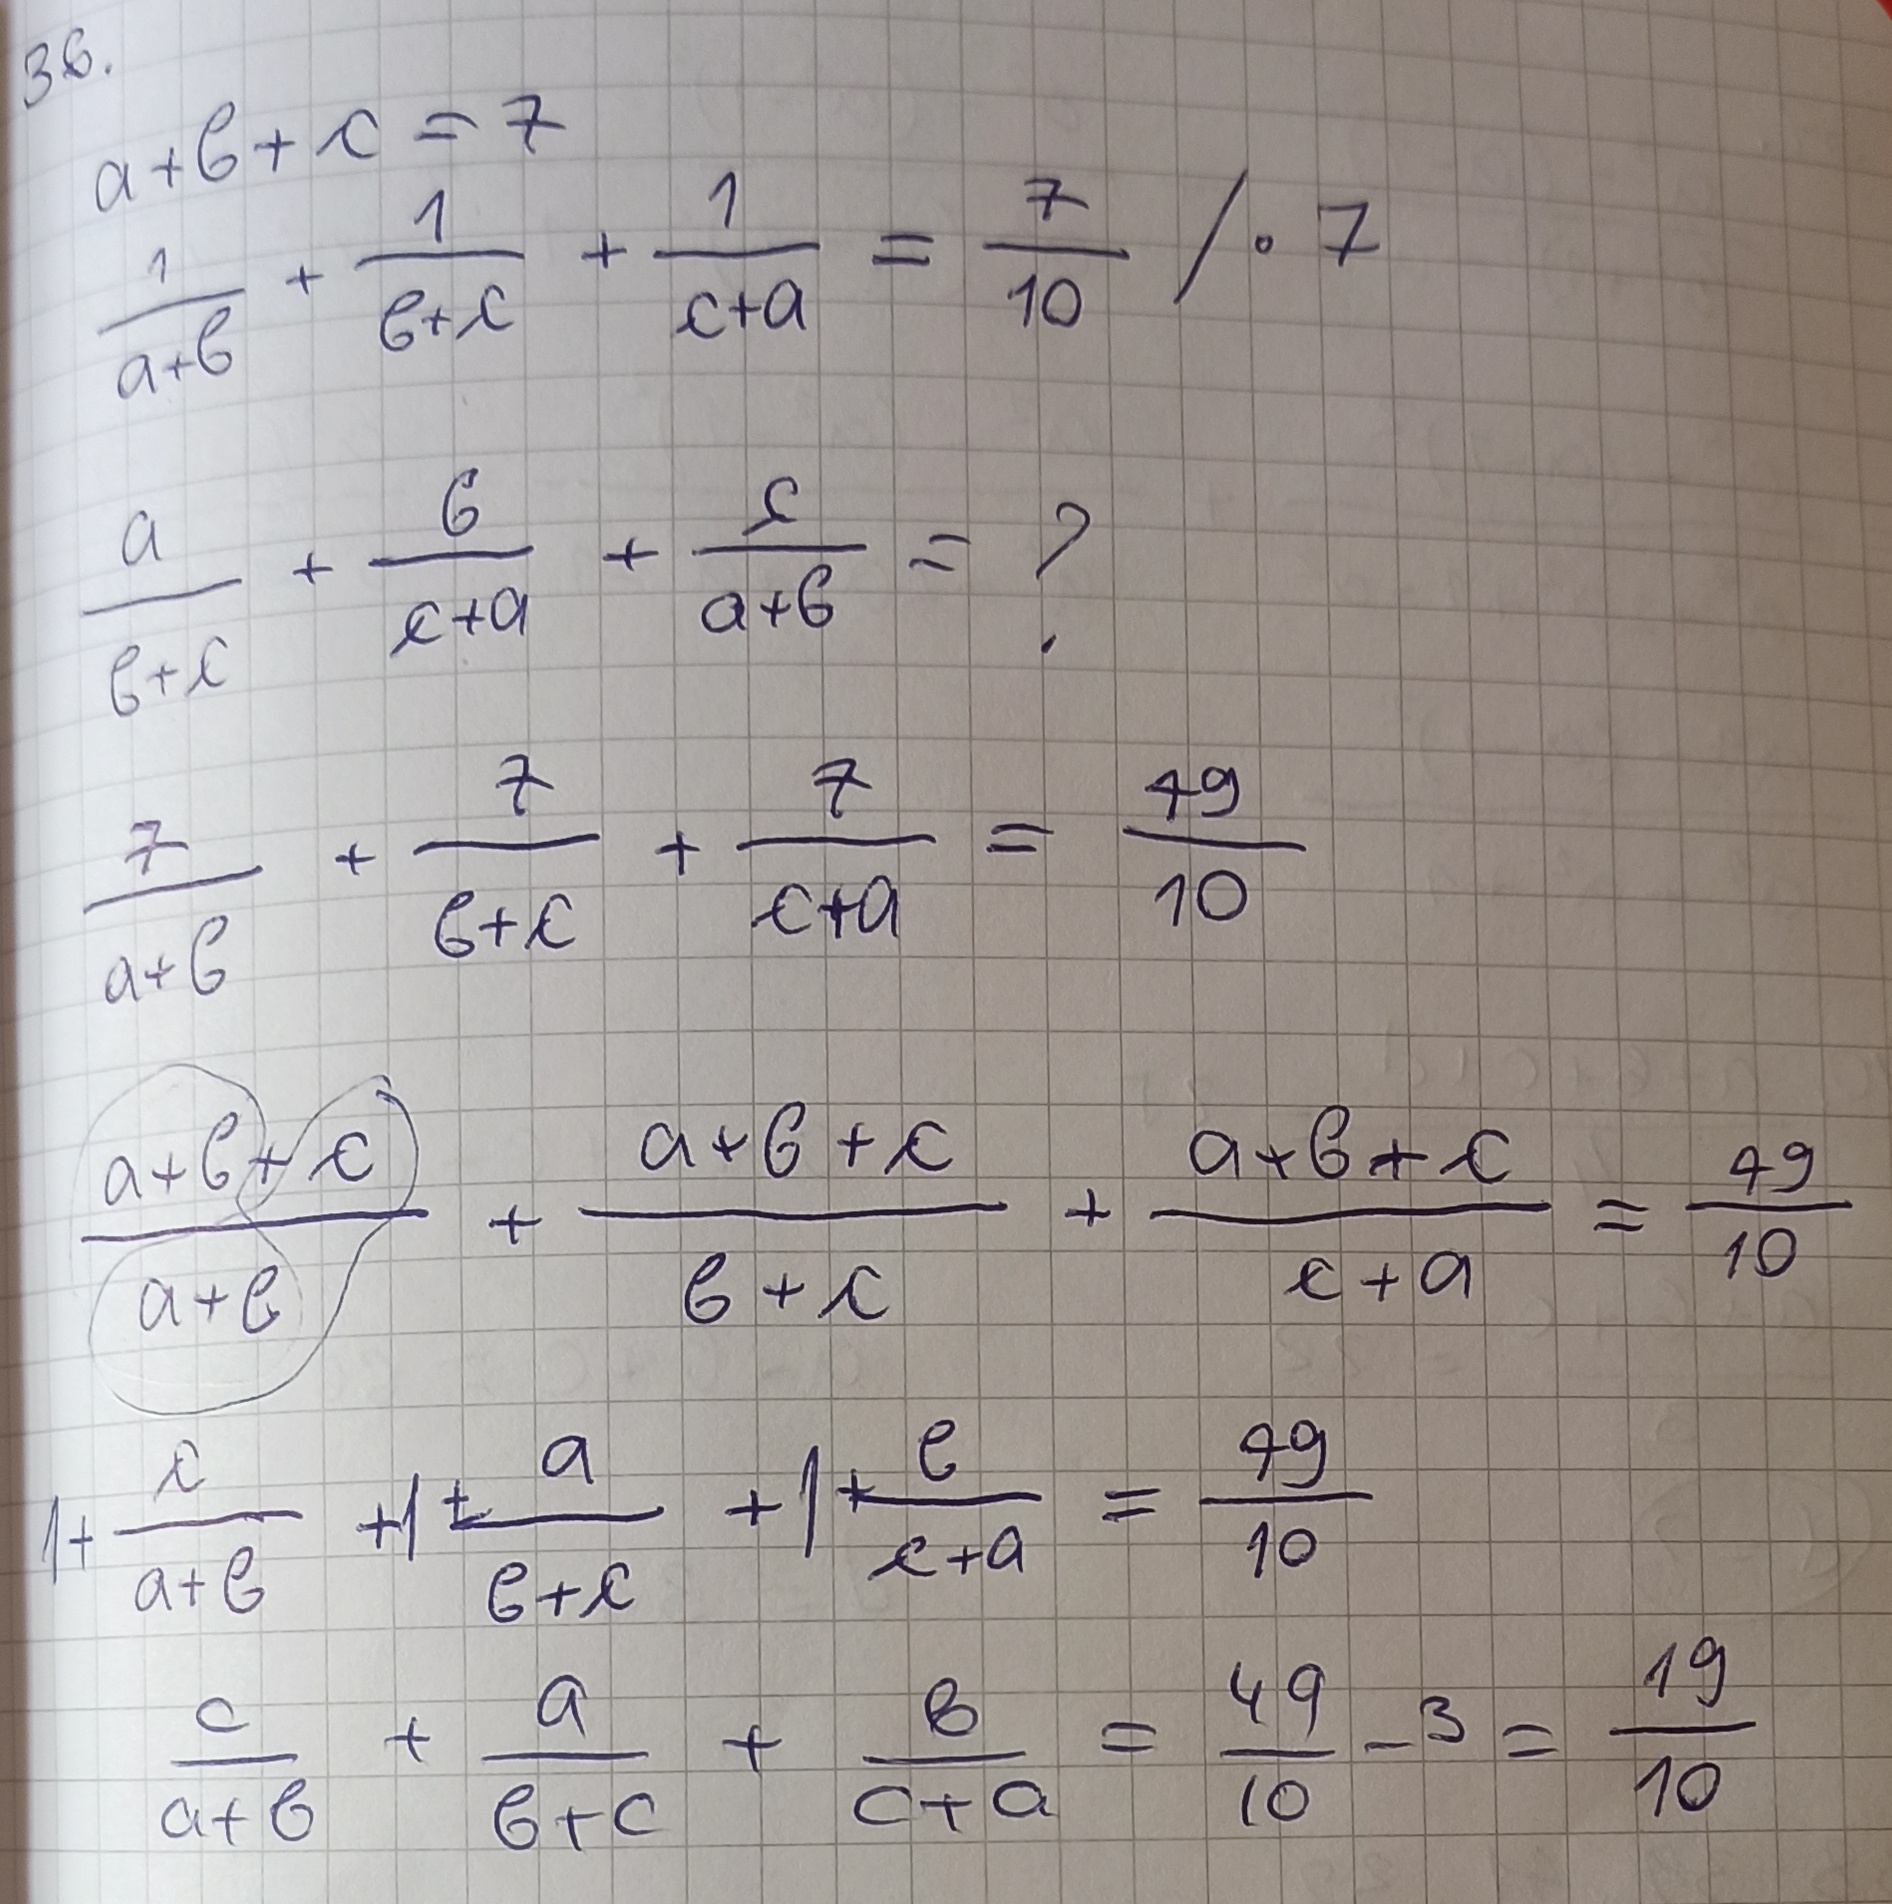 36.
a+b+c=7
1/(a+b) + 1/(b+c) + 1/(c+a) = 7/10 /·7
a/(b+c) + b/(c+a) + c/(a+b) = ?
7/(a+b) + 7/(b+c) + 7/(c+a) = 49/10
(a+b+c)/(a+b) + (a+b+c)/(b+c) + (a+b+c)/(c+a) = 49/10
1+ c/(a+b) +1+ a/(b+c) +1+ b/(c+a) = 49/10
c/(a+b) + a/(b+c) + b/(c+a) = 49/10 -3 = 19/10